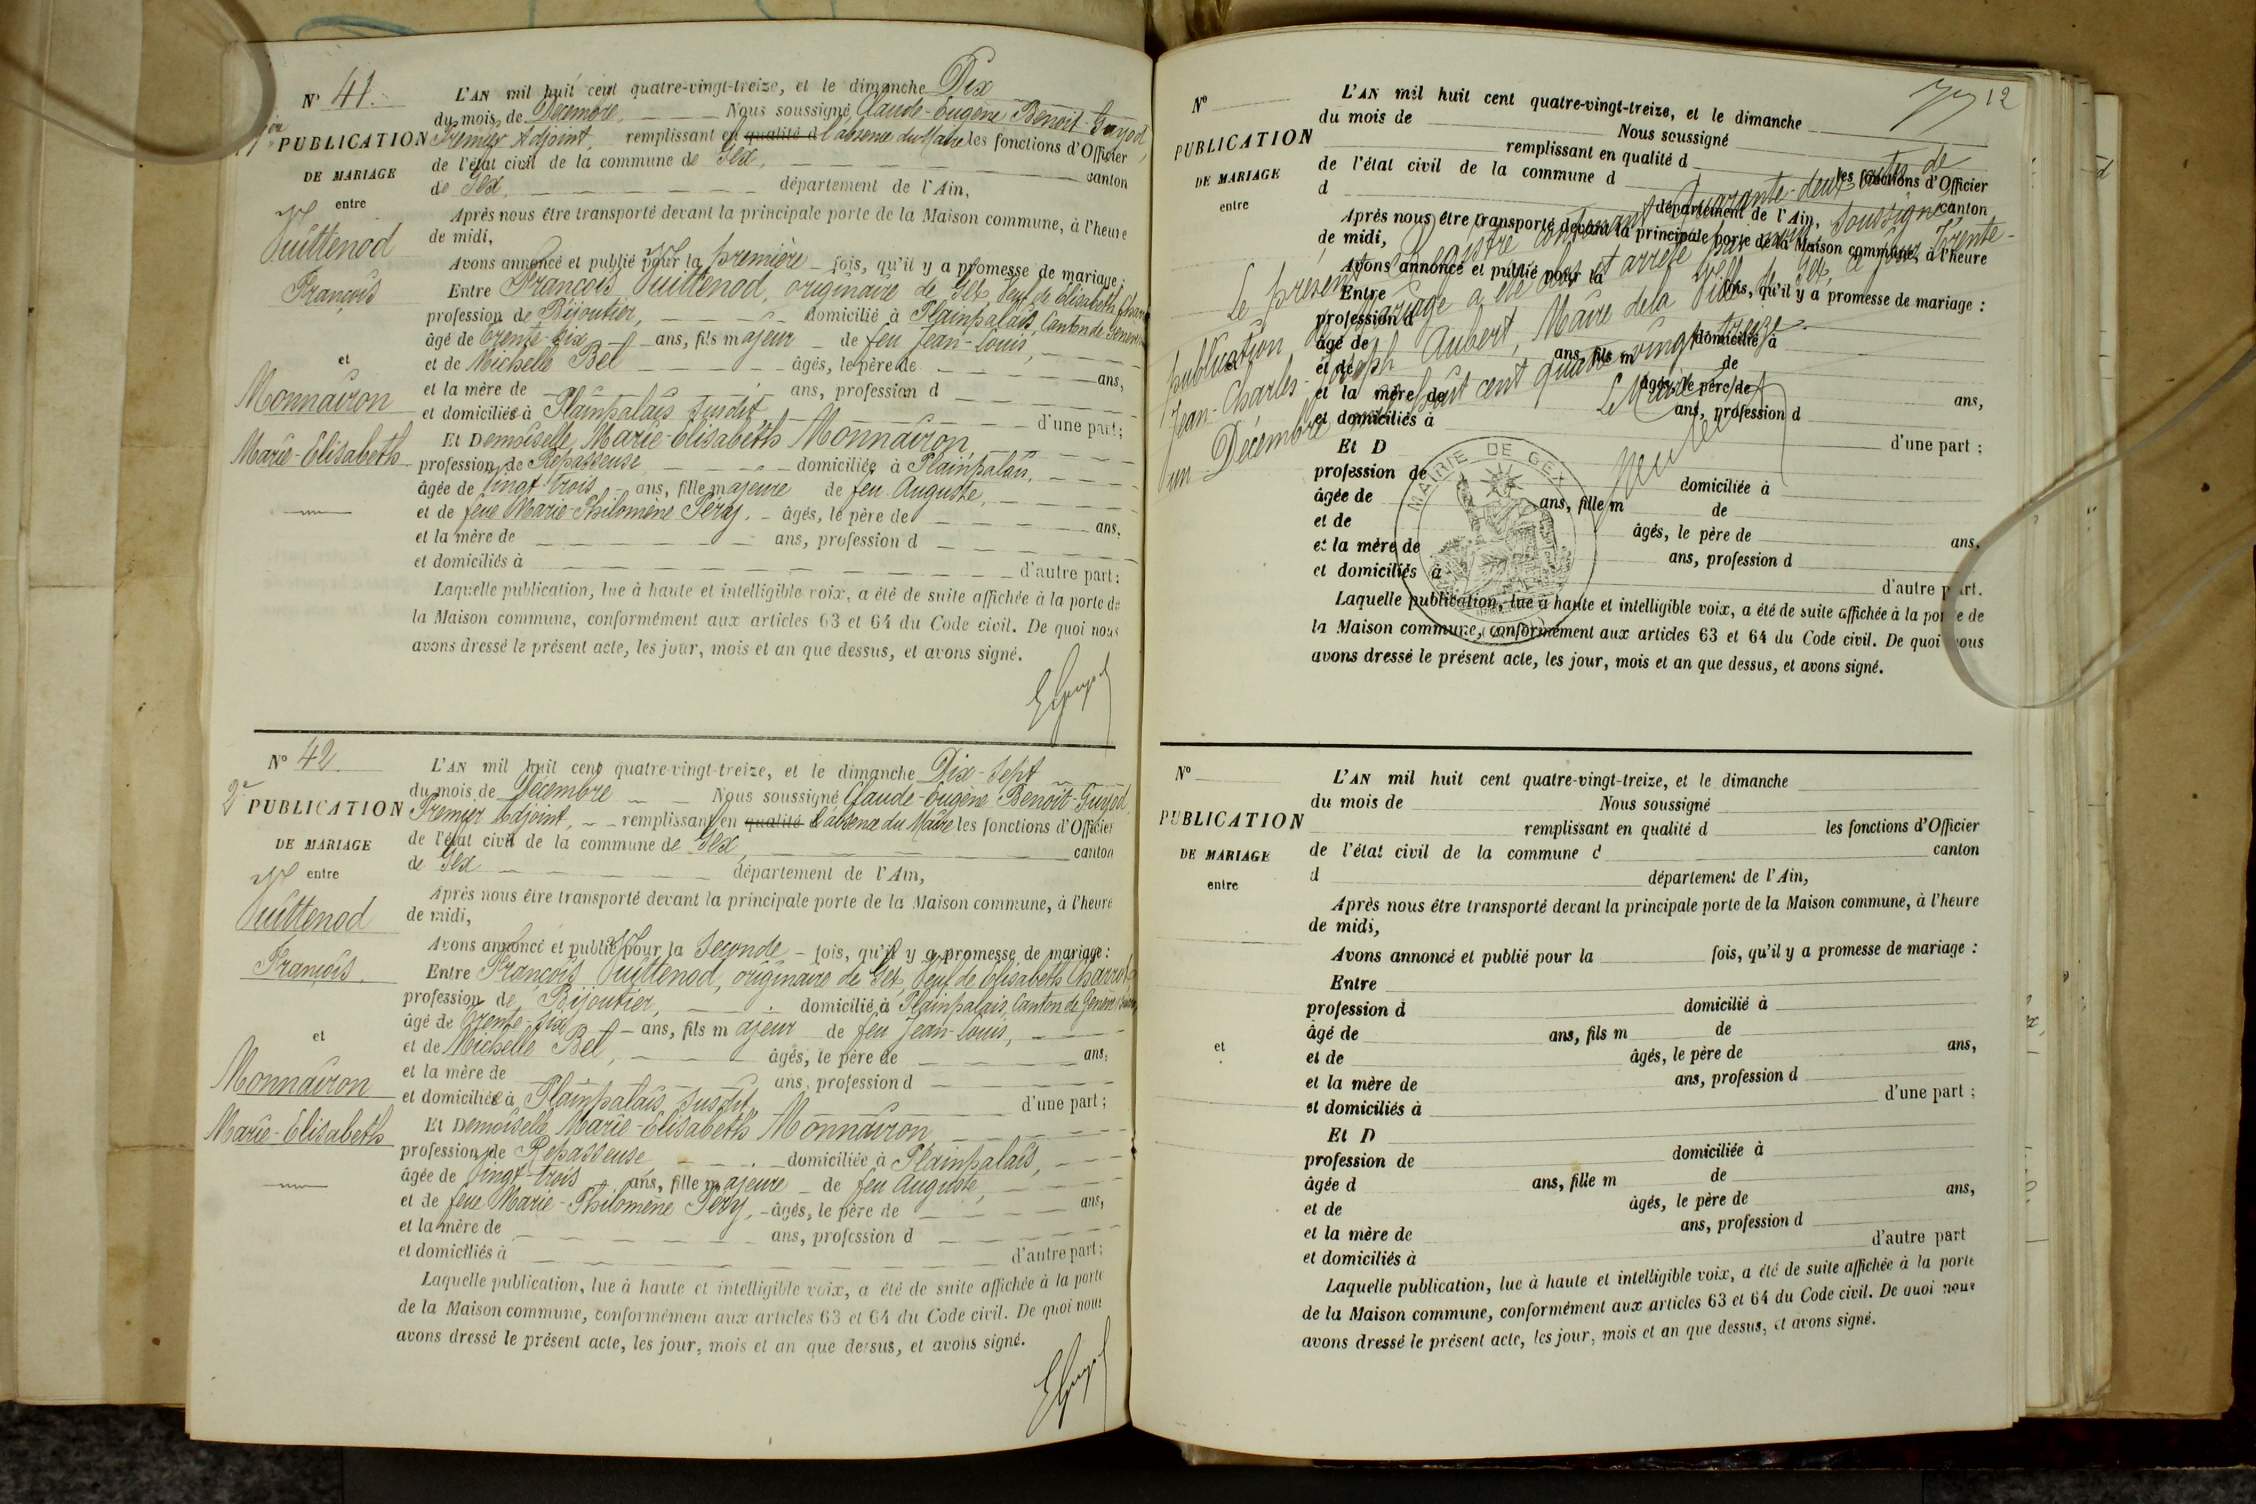 N° 41.
1ère PUBLICATION
DE MARIAGE
entre
Vuittenod
François
et
Monnairon
Marie-Elisabeth
L'AN mil huit cent quatre-vingt-treize, et le dimanche Dix
du mois de Décembre, Nous soussigné Claude-Eugène Benoit-Guyod,
Premier Adjoint, remplissant en qualité d l'absence du Maire les fonctions d'Officier
de l'état civil de la commune de Gex, canton
de Gex, département de l'Ain,
Après nous être transporté devant la principale porte de la Maison commune, à l'heure
de midi,
Avons annoncé et publié pour la première fois, qu'il y a promesse de mariage :
Entre François Vuittenod, originaire de Gex, Veuf de Elisabeth
profession de Bijoutier, domicilié à Plainpalais, Canton de Genève
âgé de trente-six ans, fils majeur de feu Jean-Louis,
et de Michelle Bel âgés, le père de ans,
et la mère de ans, profession d
et domiciliés à Plainpalais susdit d'une part ;
Et Demoiselle Marie-Elisabeth Monnairon,
profession de Repasseuse domiciliée à Plainpalais,
âgée de Vingt trois ans, fille majeure de feu Auguste,
et de feue Marie-Philomène Péry, âgés, le père de ans,
et la mère de ans, profession d
et domiciliés à d'autre part ;
Laquelle publication, lue à haute et intelligible voix, a été de suite affichée à la porte de
la Maison commune, conformément aux articles 63 et 64 du Code civil. De quoi nous
avons dressé le présent acte, les jour, mois et an que dessus, et avons signé.
EGuyod
N° 42
2e PUBLICATION
DE MARIAGE
entre
Vuittenod
François
et
Monnairon
Marie-Elisabeth
L'AN mil huit cent quatre-vingt-treize, et le dimanche Dix-Sept
du mois de Décembre Nous soussigné Claude-Eugène Benoit-Guyod,
Premier Adjoint, remplissant en qualité d l'absence du Maire les fonctions d'Officier
de l'état civil de la commune de Gex, canton
de Gex département de l'Ain,
Après nous être transporté devant la principale porte de la Maison commune, à l'heure
de midi,
Avons annoncé et publié pour la Seconde fois, qu'il y a promesse de mariage :
Entre François Vuittenod, originaire de Gex, Veuf de Elisabeth
profession de Bijoutier, domicilié à Plainpalais, Canton de Genève
âgé de trente-six ans, fils majeur de feu Jean-Louis,
et de Michelle Bel, âgés, le père de ans,
et la mère de ans, profession d
et domiciliés à Plainpalais susdit, d'une part ;
Et Demoiselle Marie-Elisabeth Monnairon,
profession de Repasseuse domiciliée à Plainpalais,
âgée de Vingt-trois ans, fille majeure de feu Auguste,
et de feue Marie-Philomène Péry, âgés, le père de ans,
et la mère de ans, profession d
et domiciliés à d'autre part ;
Laquelle publication, lue à haute et intelligible voix, a été de suite affichée à la porte
de la Maison commune, conformément aux articles 63 et 64 du Code civil. De quoi nous
avons dressé le présent acte, les jour, mois et an que dessus, et avons signé.
EGuyod
12
N°
PUBLICATION
DE MARIAGE
entre
L'AN mil huit cent quatre-vingt-treize, et le dimanche
du mois de Nous soussigné
remplissant en qualité d les fonctions d'Officier
de l'état civil de la commune d canton
d département de l'Ain,
Après nous être transporté devant la principale porte de la Maison commune, à l'heure
de midi,
Avons annoncé et publié pour la fois, qu'il y a promesse de mariage :
Entre
profession d domicilié à
âgé de ans, fils m de
et de âgés, le père de ans,
et la mère de ans, profession d
et domiciliés à d'une part ;
Et D
profession de domiciliée à
âgée de ans, fille m de
et de âgés, le père de ans,
et la mère de ans, profession d
et domiciliés à d'autre part.
Laquelle publication, lue à haute et intelligible voix, a été de suite affichée à la porte de
la Maison commune, conformément aux articles 63 et 64 du Code civil. De quoi nous
avons dressé le présent acte, les jour, mois et an que dessus, et avons signé.
Le présent Registre contenant Quarante-deux actes de
publication de Mariage a été clos et arrêté par nous, soussigné
Jean-Charles-Joseph Aubert, Maire de la Ville de Gex, ce jour Trente-
un Décembre mil huit cent quatre-vingt-treize.
Le Maire
MAIRIE DE GEX
N°
PUBLICATION
DE MARIAGE
entre
et
L'AN mil huit cent quatre-vingt-treize, et le dimanche
du mois de Nous soussigné
remplissant en qualité d les fonctions d'Officier
de l'état civil de la commune d canton
d département de l'Ain,
Après nous être transporté devant la principale porte de la Maison commune, à l'heure
de midi,
Avons annoncé et publié pour la fois, qu'il y a promesse de mariage :
Entre
profession d domicilié à
âgé de ans, fils m de
et de âgés, le père de ans,
et la mère de ans, profession d
et domiciliés à d'une part ;
Et D
profession de domiciliée à
âgée d ans, fille m de
et de âgés, le père de ans,
et la mère de ans, profession d
et domiciliés à d'autre part
Laquelle publication, lue à haute et intelligible voix, a été de suite affichée à la porte
de la Maison commune, conformément aux articles 63 et 64 du Code civil. De quoi nous
avons dressé le présent acte, les jour, mois et an que dessus, et avons signé.